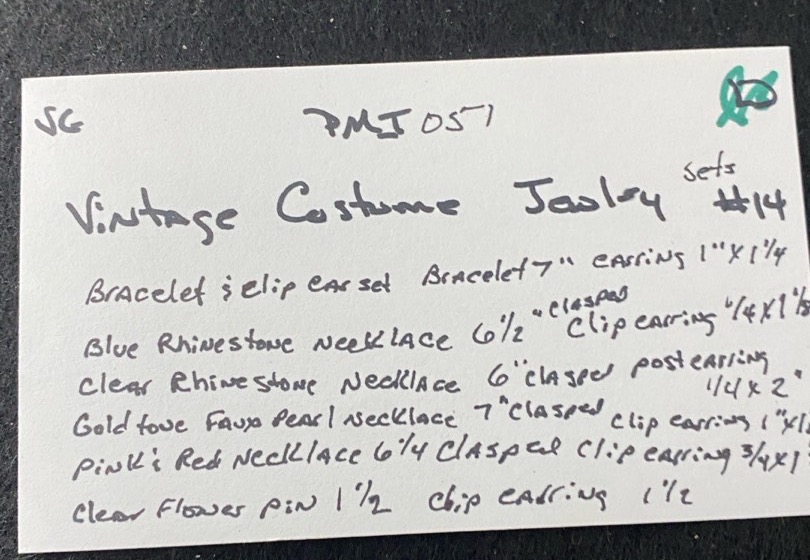 SG PMI 051 D
Vintage Costume Jewlry sets #14
Bracelet & clip ear set Bracelet 7" earring 1" x 1 1/4
Blue Rhinestone Necklace 6 1/2" clasped clip earring 1/4 x 1 1/8
Clear Rhinestone Necklace 6" clasped post earring 1/4 x 2"
Gold tone Faux Pearl Necklace 7" clasped clip earring 1" x
Pink & Red Necklace 6 1/4 clasped clip earring 3/4 x 1
Clear Flower pin 1 1/2 clip earring 1 1/2